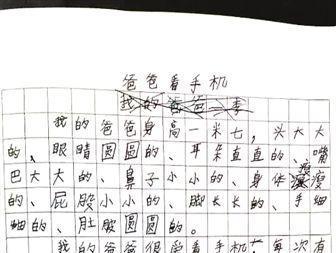 爸爸看手机
我的爸爸身高一米七，头大大
的、眼睛圆圆的、耳朵直直的、嘴
巴大大的、鼻子小小的、身体瘦瘦
的、屁股小小的、脚长长的、手细
细的、肚脸圆圆的。
我的爸爸很爱看手机，每次有